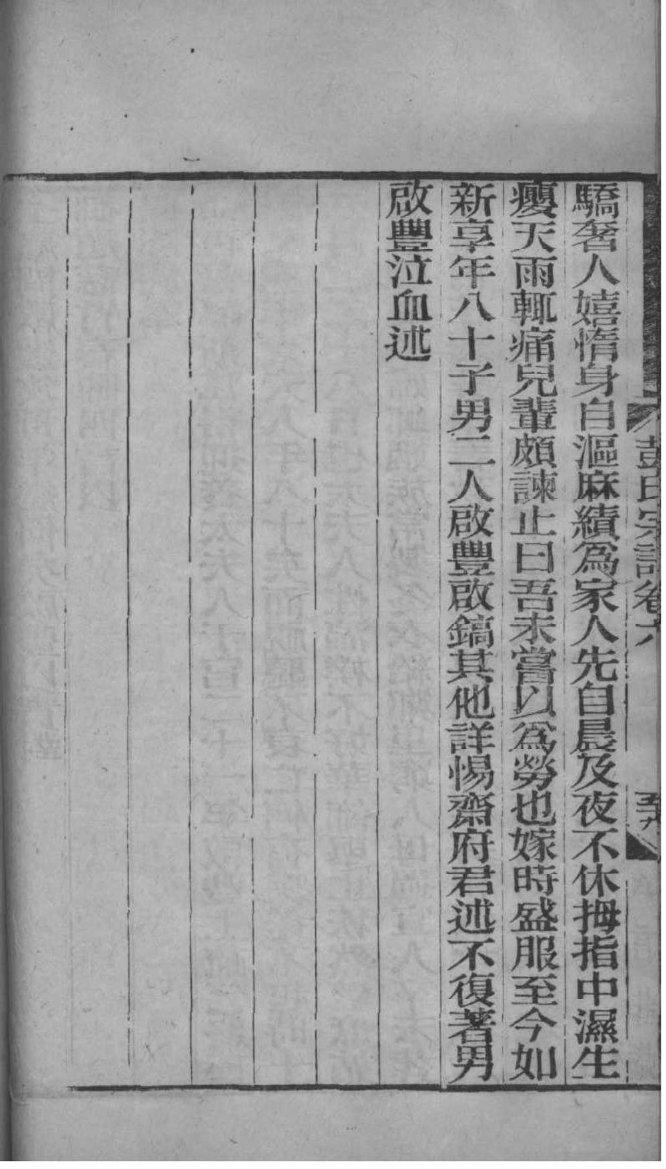 彭氏宗譜卷六
驕奢人嬉惰身自漚麻績爲家人先自晨及夜不休拇指中濕生
癭天雨輒痛兒輩頗諫止曰吾未嘗以爲勞也嫁時盛服至今如
新享年八十子男二人啟豐啟鎬其他詳惕齋府君述不復著男
啟豐泣血述